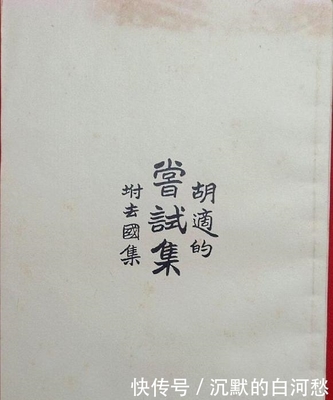 胡適的
嘗試集
坿去國集
快传号／沉默的白河愁